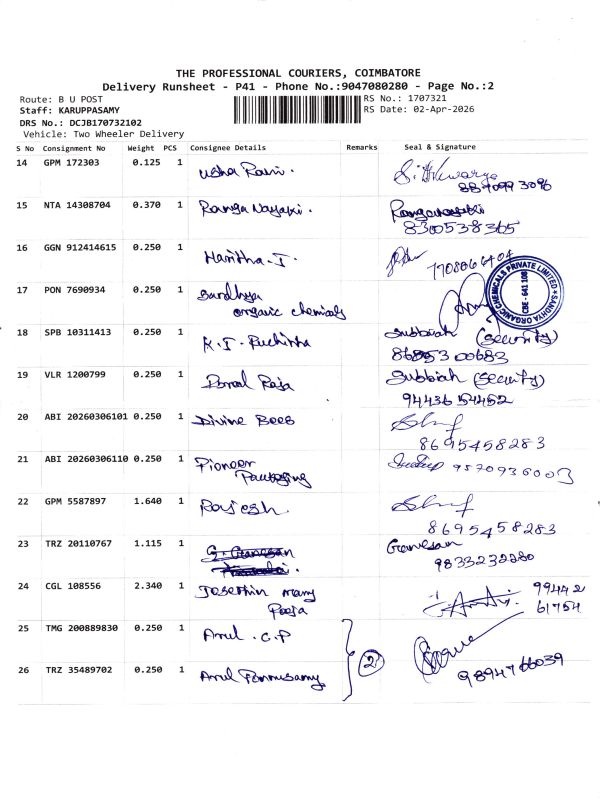 THE PROFESSIONAL COURIERS, COIMBATORE
Delivery Runsheet - P41 - Phone No.:9047080280 - Page No.:2
Route: B U POST
RS No.: 1707321
Staff: KARUPPASAMY
RS Date: 02-Apr-2026
DRS No.: DCJB170732102
Vehicle: Two Wheeler Delivery
S No Consignment No Weight PCS Consignee Details Remarks Seal & Signature
14 GPM 172303 0.125 1 Usha Rani.
15 NTA 14308704 0.370 1 Ranga Nayaki.
8300538365
16 GGN 912414615 0.250 1 Haritha. J.
7708866404
17 PON 7690934 0.250 1 Sandhya
organic chemicals
SANDHYA ORGANIC CHEMICALS PRIVATE LIMITED
CBE - 641 108
18 SPB 10311413 0.250 1 K. J. Ruchitha Subbiah (Security)
19 VLR 1200799 0.250 1 Raja Subbiah (Security)
94436 54452
20 ABI 20260306101 0.250 1 Divine Bees
8695458283
21 ABI 20260306110 0.250 1 Pioneer
Packaging
9570936003
22 GPM 5587897 1.640 1 Rajesh.
8695458283
23 TRZ 20110767 1.115 1 G. Ganesan Ganesan
9833232280
24 CGL 108556 2.340 1 Josephin mary 99442
Pooja 61754
25 TMG 200889830 0.250 1 Arul . C. P
2
26 TRZ 35489702 0.250 1 Arul Ponnusamy
9894766039